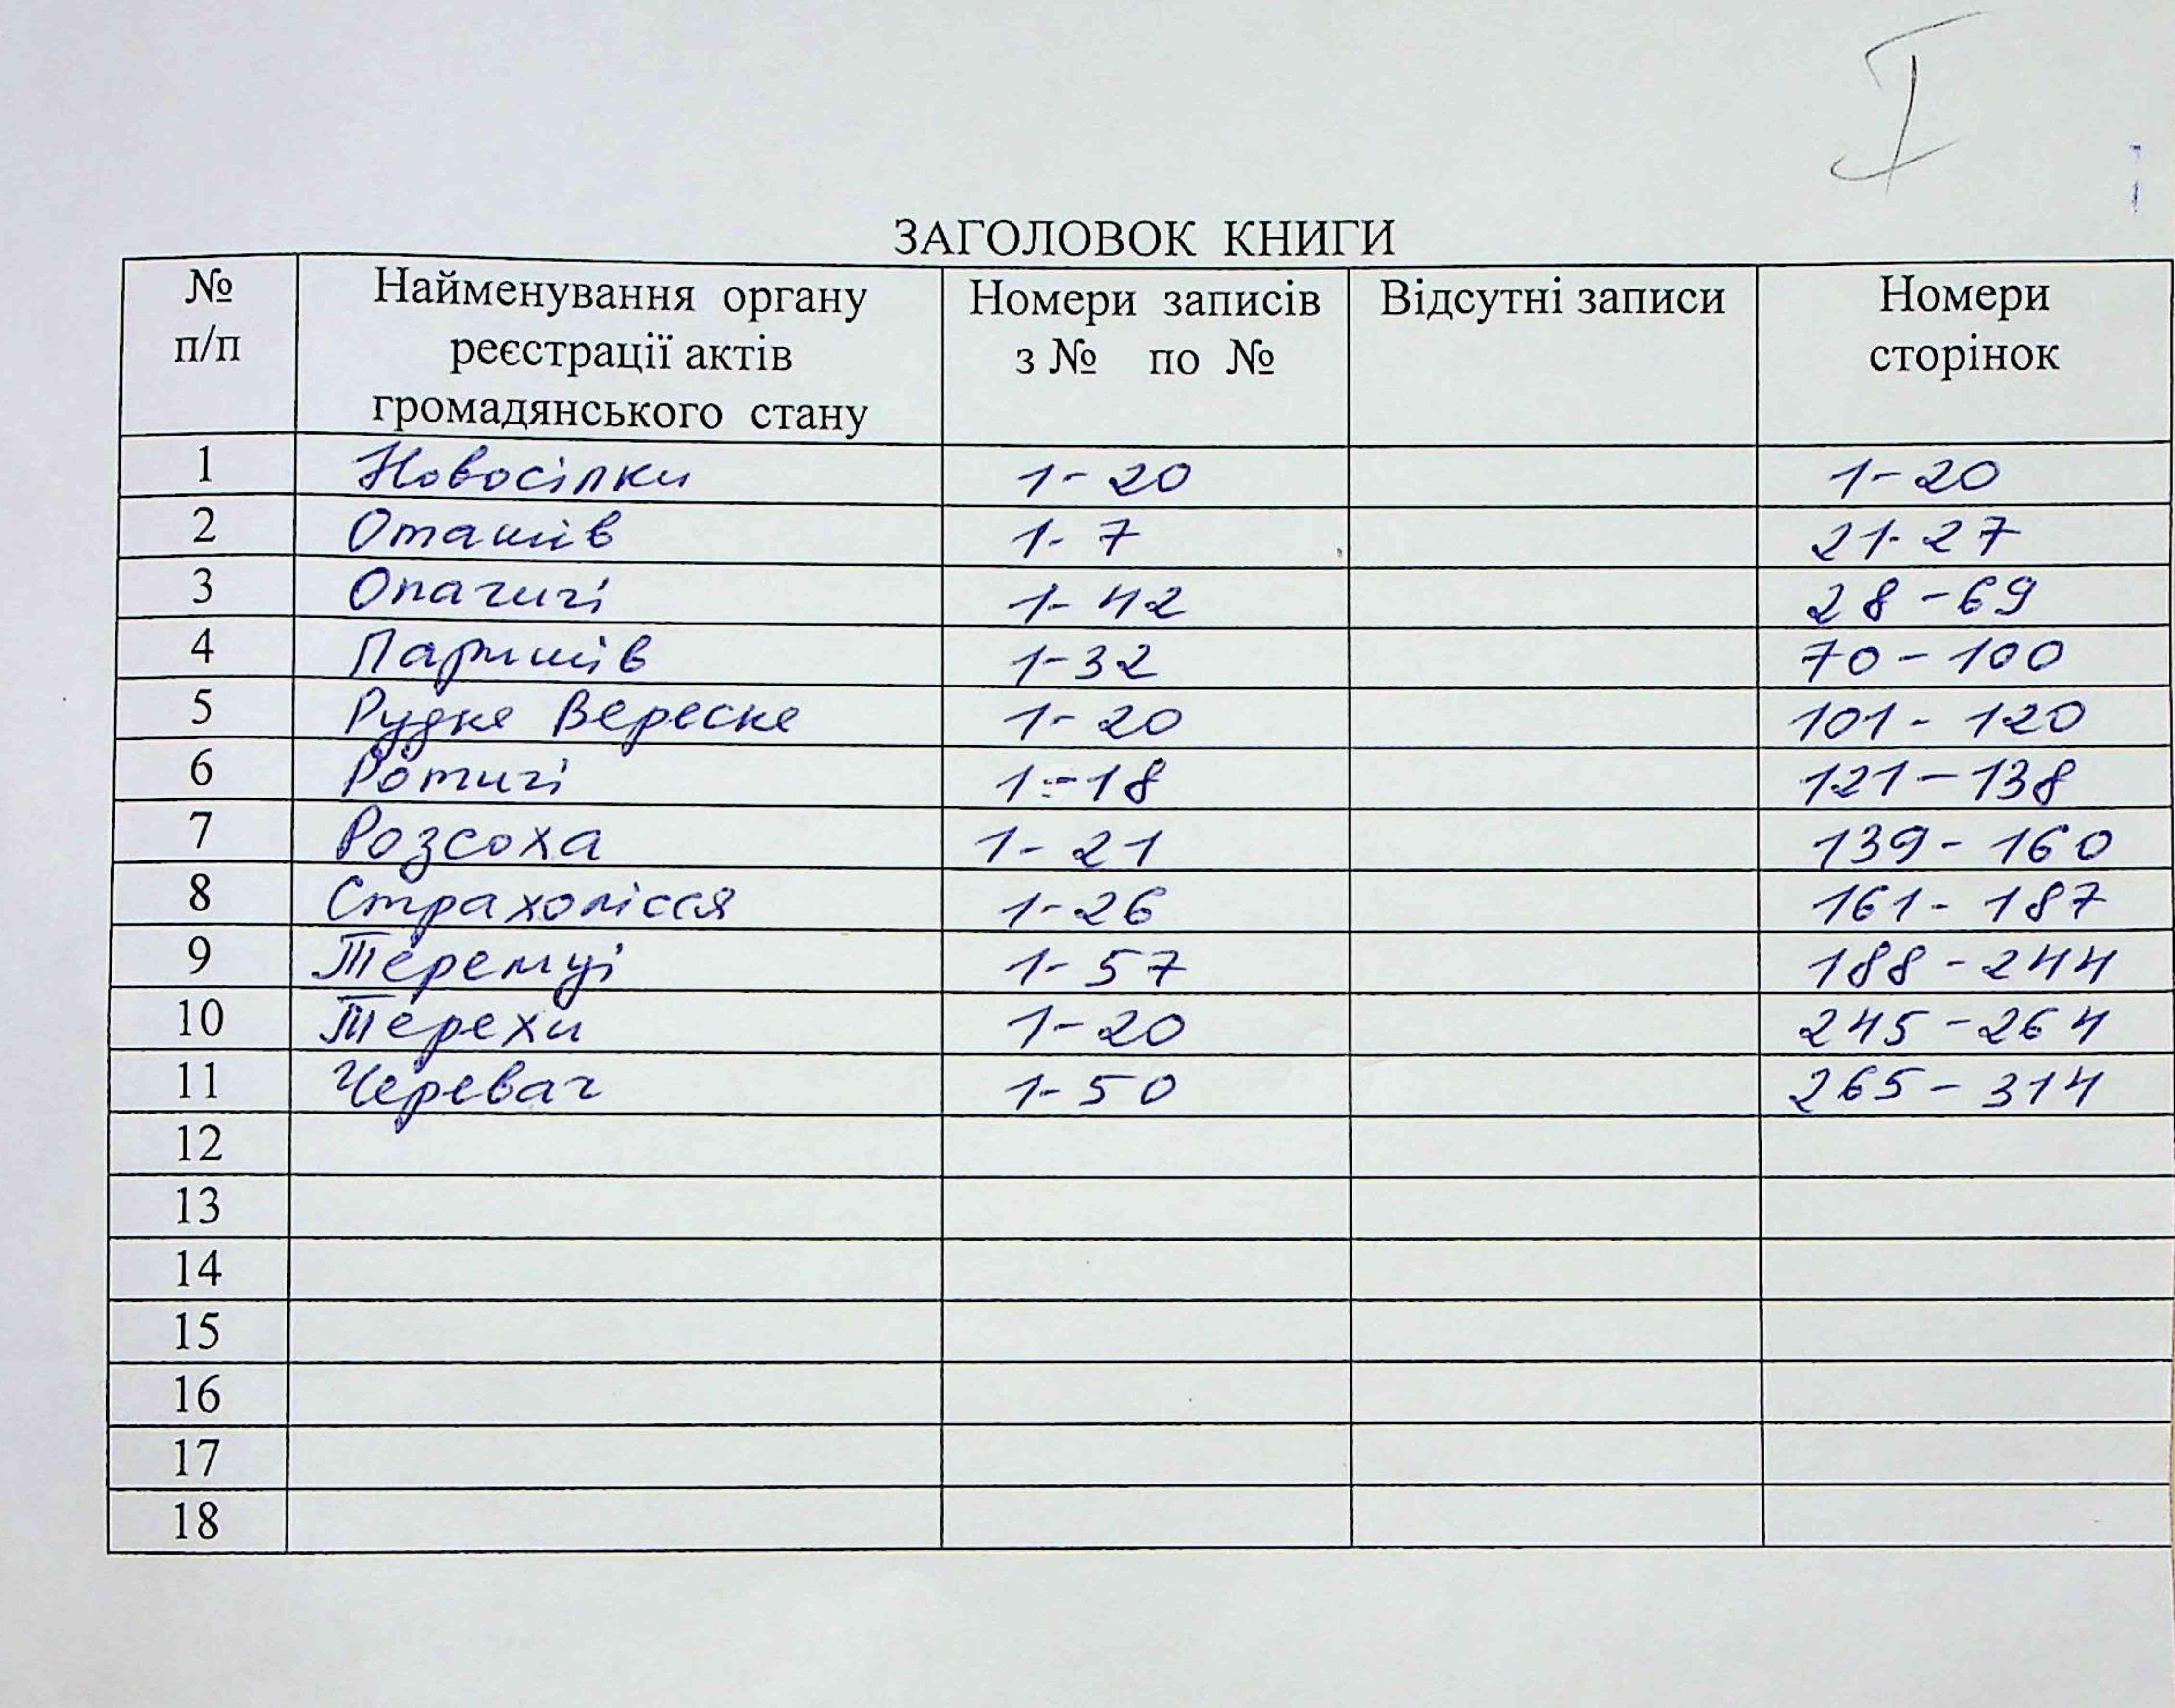 I
ЗАГОЛОВОК КНИГИ
№ п/п Найменування органу реєстрації актів громадянського стану Номери записів з № по № Відсутні записи Номери сторінок
1 Новосілки 1-20 1-20
2 Оташів 1-7 21-27
3 Опачичі 1-42 28-69
4 Паришів 1-32 70-100
5 Рудке Вереске 1-20 101-120
6 Ротичі 1-18 121-138
7 Розсоха 1-21 139-160
8 Страхолісся 1-26 161-187
9 Теремці 1-57 188-244
10 Терехи 1-20 245-264
11 Черевач 1-50 265-314
12
13
14
15
16
17
18